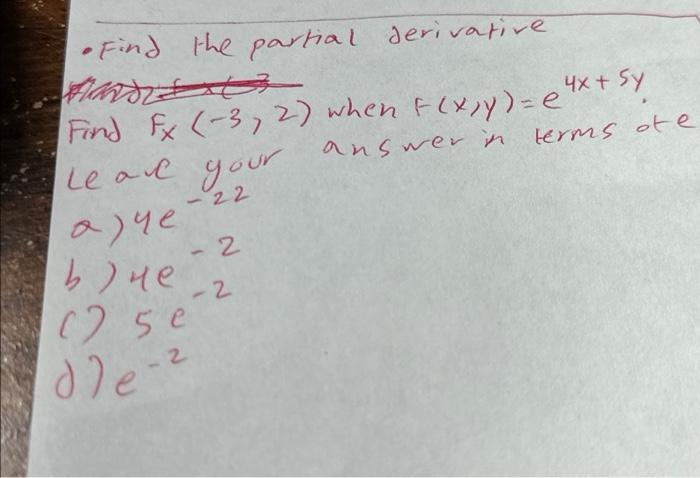 • Find the partial derivative
Find Fx (-3, 2) when F(x,y) = e^4x + 5y.
Leave your answer in terms of e
a) 4e^-22
b) 4e^-2
c) 5e^-2
d) e^-2